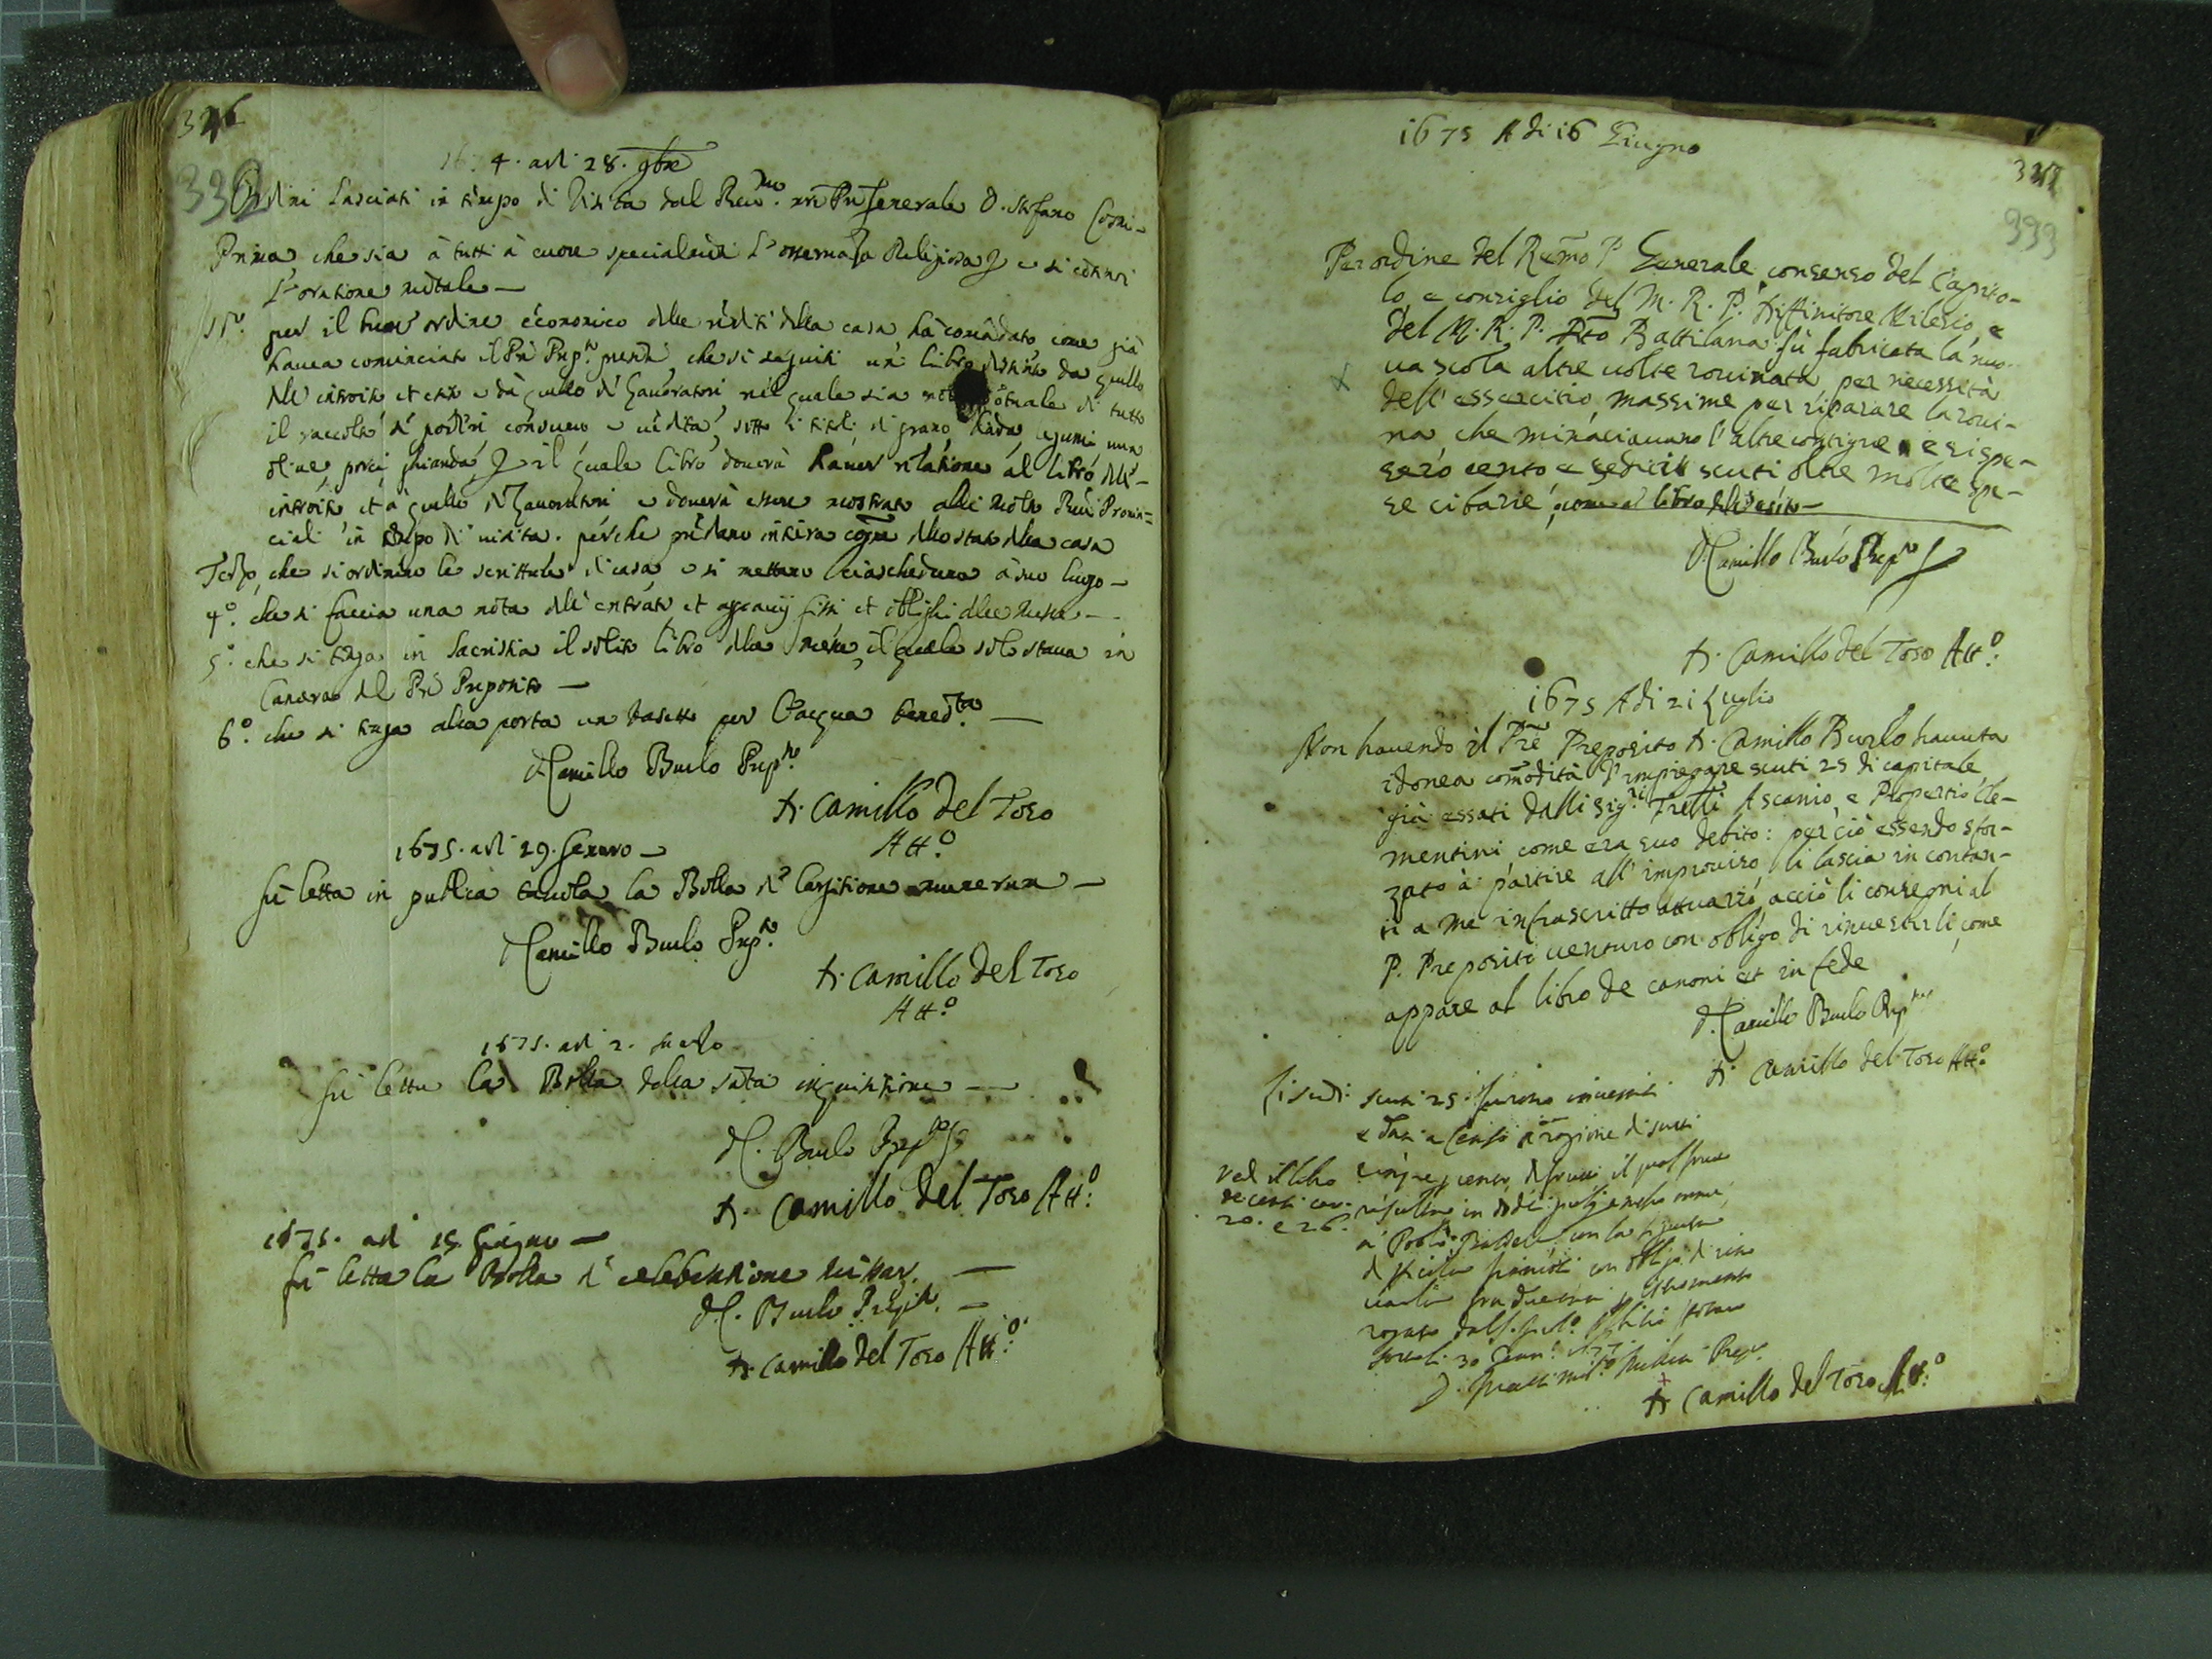 326
332
1674. adì 28. 9bre
Ordini lasciati in tempo di Visita dal Reu.mo nro Pre Generale D. Stefano Cosmi-
Prima che sia à tutti à cuore specialmte l'osseruaza Religiosa, e si cotinui
l'oratione metale—
per il buon ordine economico delle rediti della casa, ha comadato come già
hauea cominciato il Prè Prep.to prente, che si seguiti un libro distinto da quello
dell' introito et esito e da quello d' Lauoratori nel quale sia di tutto
il raccolto d' poderi consumo e uedita, sotto li titoli di grano, biada, legumi
oliue, porci, ghianda, il quale libro douerà hauer relatione al libro dell'-
introito et à quello d' Lauoratori e douerà essere mostrato alli Molto Reudi Prouin=
ciali in tempo di uisita. perche predano intiera cogne dello stato della casa
che si ordinino le scritture di casa e si mettano ciascheduna à suo luogo—
4.º che si faccia una nota dell' entrate et aggrauij fissi et oblighi delle Messe—
5.º che si tega in Sacristia il solito libro delle messe, il quale solo staua in
Camera del Prè Preposito—
6.º che si tega alla porta un basetto per l'acqua bened.ta—
D. Camillo Burlo Prep.to
D. Camillo del Toso
Att.º
1675. adì 29. Genaro—
Fù letta in publica tauola la Bolla d' largitione munerum—
D. Camillo Burlo Prep.to
D. Camillo del Toso
Att.º
1675. adì 2.
Fù letta la Bolla della sata inquisitione—
D. C. Burlo Prep.to
D. Camillo del Toso Att.º
1675. adì 15 Giugno—
fù letta la Bolla d' celebratione missar.—
D. C. Burlo Prep.to—
D. Camillo del Toso Att.º
327
333
1675 A di 16 Giugno
Per ordine del Remo P. Generale, consenso del Capito-
lo, e consiglio del M. R. P. Diffinitore Milesio, e
del M. R. P. Dto Battilana fù fabricata la nuo-
ua scola altre uolte rouinata, per necessità
dell' essercitio, massime per riparare la roui-
na, che minaciauano l'altre contigue e si spe-
sero cento e sedici scuti oltre molte spe-
se cibarie, come al libro dell' esito—
D. Camillo Burlo Prep.to
D. Camillo del Toso Att.º
1675 A di 21 Luglio
Non hauendo il Prè Preposito D. Camillo Burlo hauuta
idonea comodità d'impiegare scuti 25 di capitale
già essati dalli Sig.ri Frelli Ascanio, e Propertio Cle-
mentini come era suo debito: perciò essendo sfor-
zato à partire all' improuiso, li lascia in contan-
ti a me infrascritto attuario, acciò li consegni al
P. Preposito uenturo con obligo di rinuestirli, come
appare al libro de canoni et in fede
D. Camillo Burlo Prep.to
D. Camillo del Toso Att.º
Li sudi scuti 25 furono inuestiti
e dati a Censo à ragione di scuti
cinque per cento,
Ved. il libro
de censi car.
20. e 26.
con la sigurtà
con obligo di
30 Genn.
D. Camillo del Toso Att.º